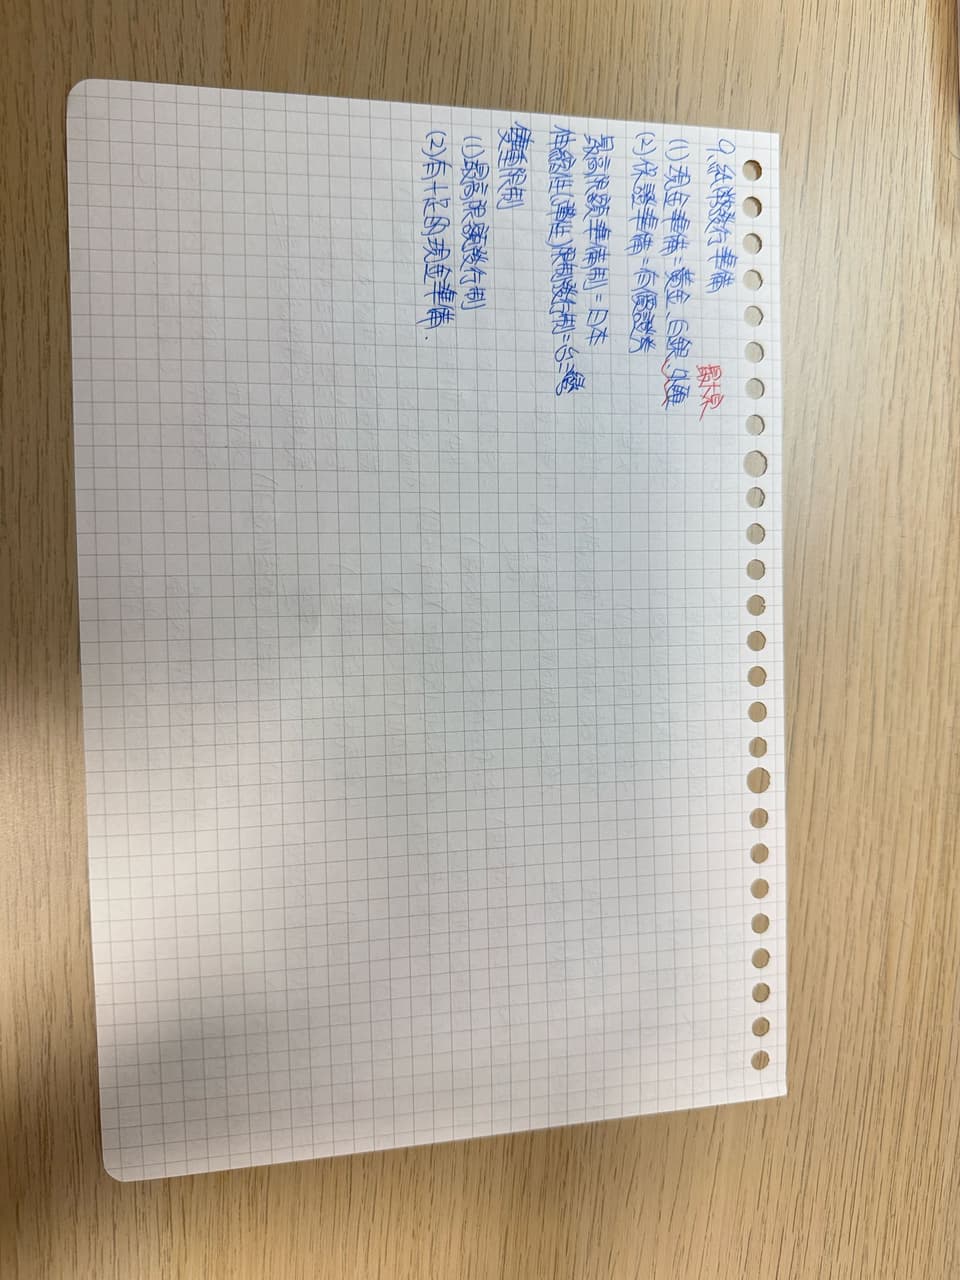 9.紙幣發行準備
最大宗
(1)現金準備=黃金、白銀、外匯
(2)保證準備=有價證券
最高限額準備制=日本
伸縮性(彈性)限制發行制=台灣
雙重限制
(1)最高限額發行制
(2)有十足的現金準備.